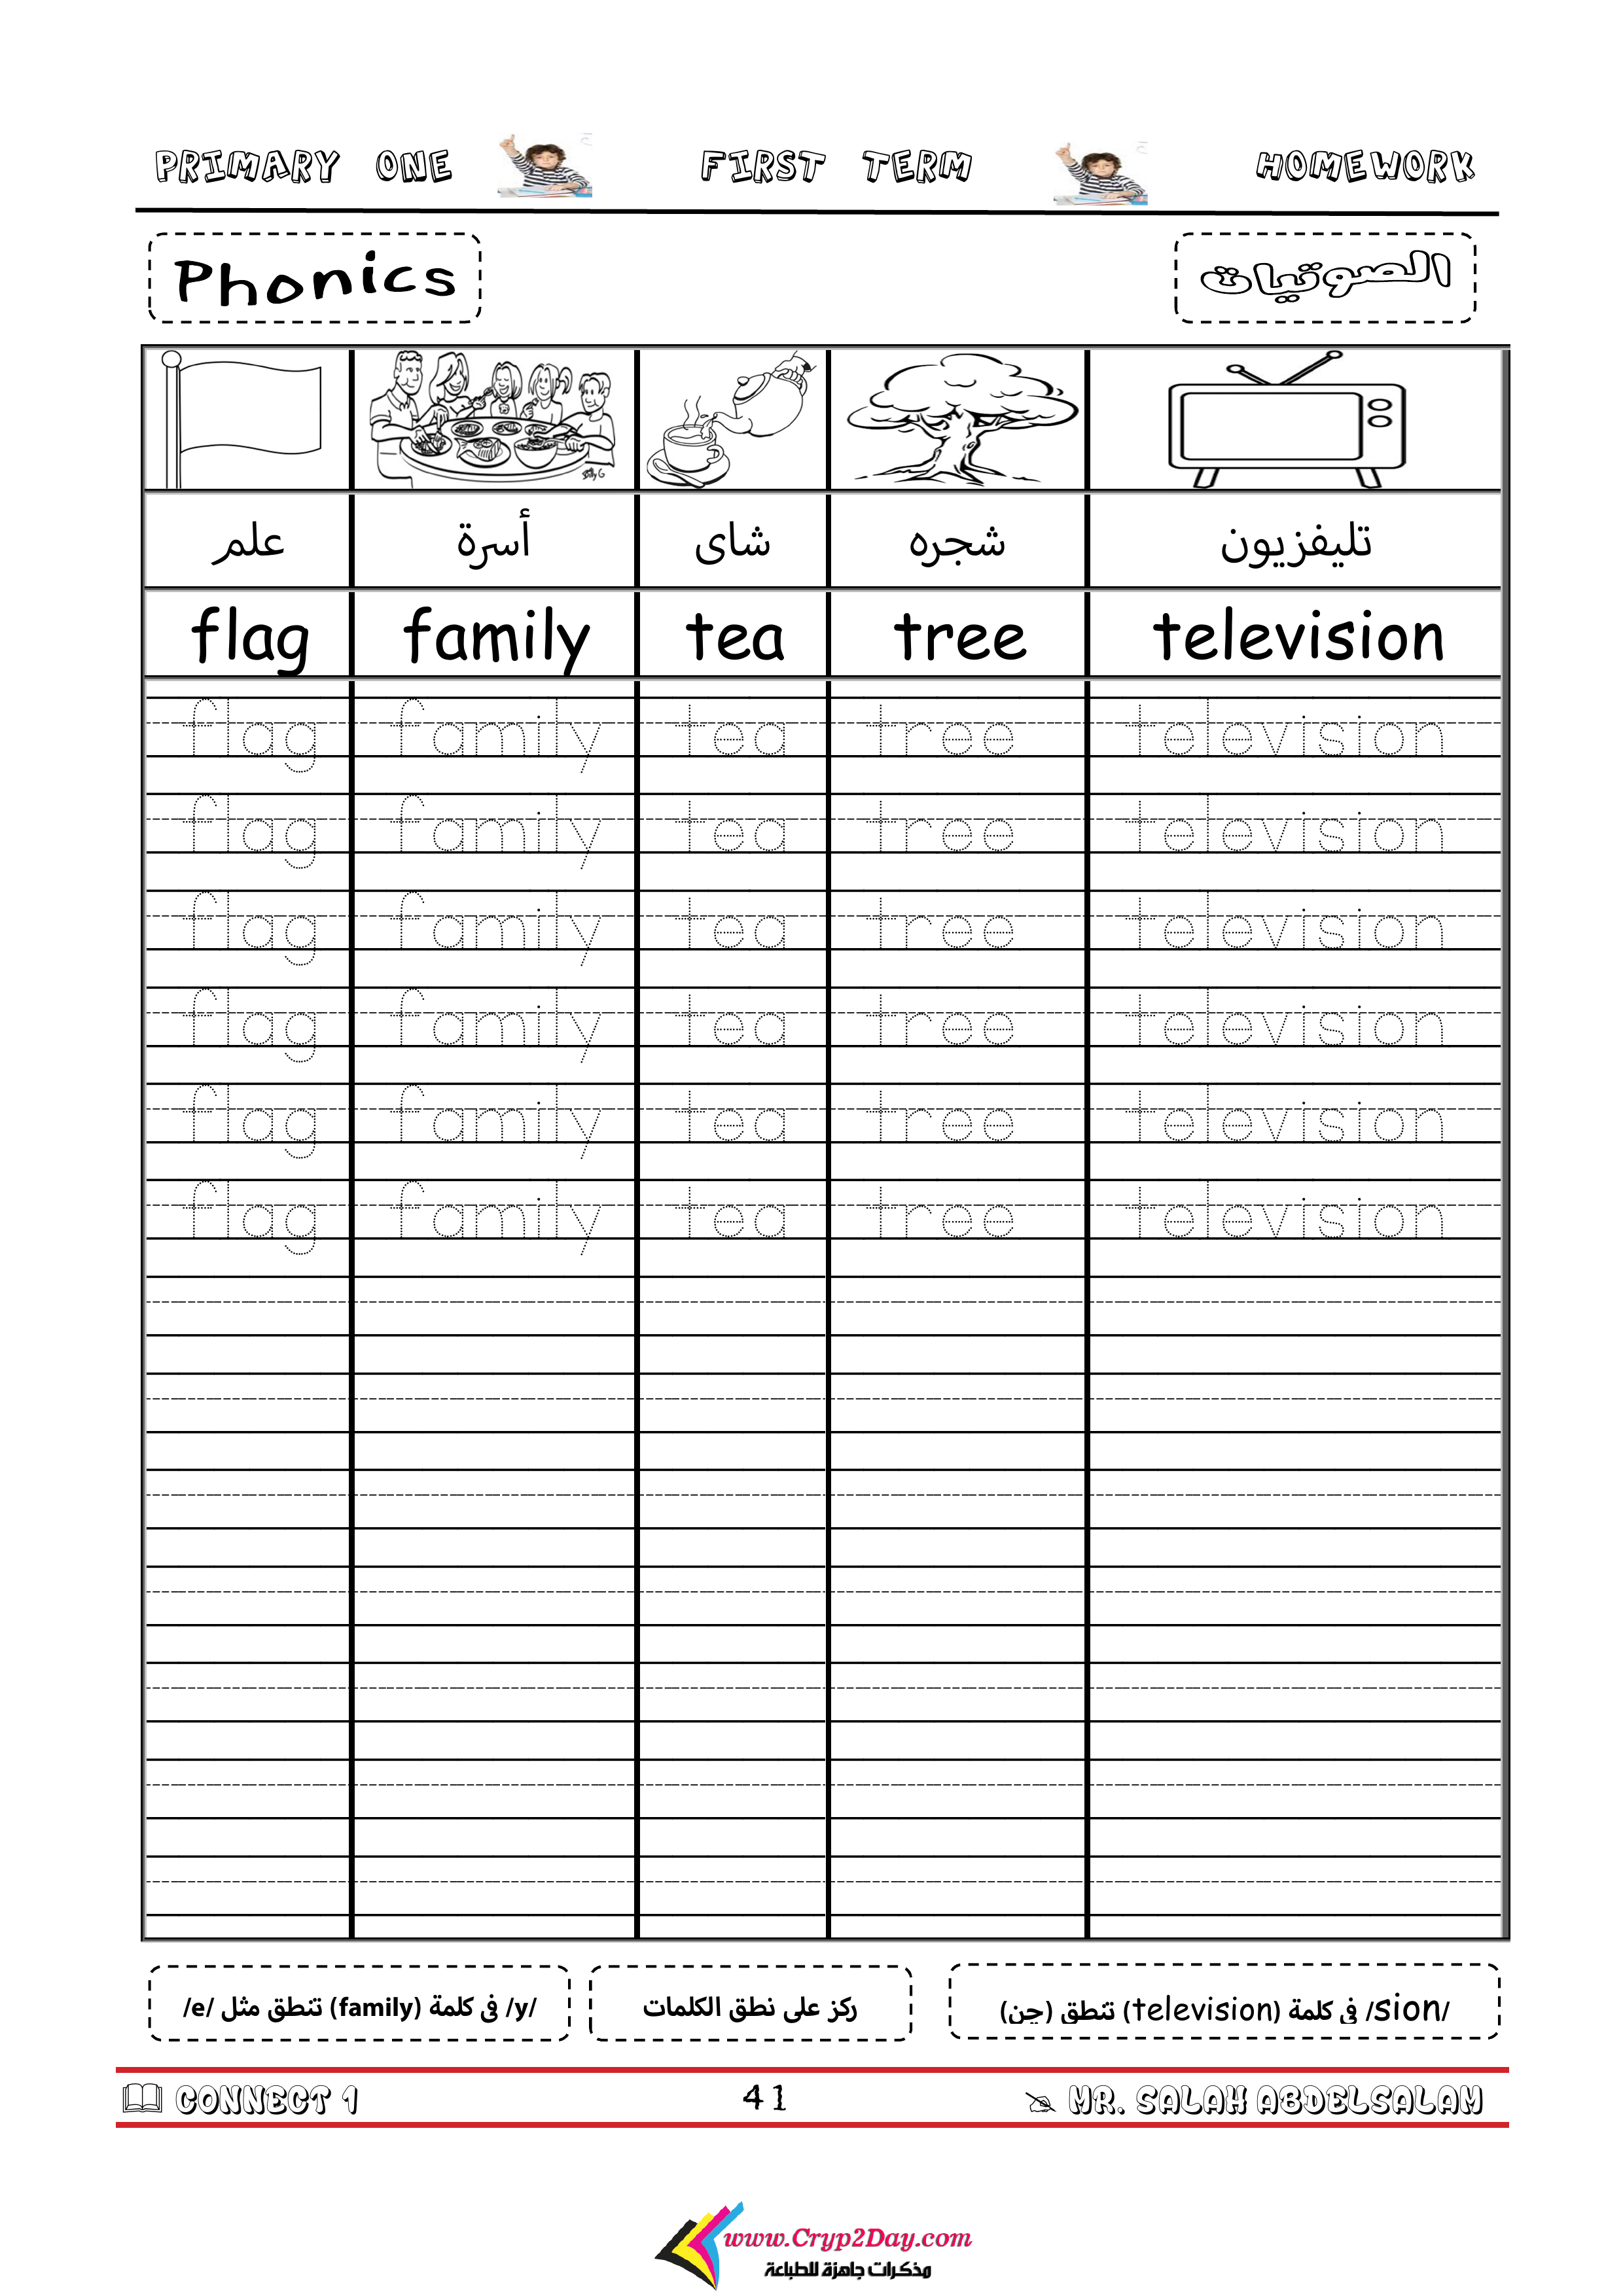 PRIMARY ONE FIRST TERM HOMEWORK
Phonics الصوتيات
علم أسرة شاى شجره تليفزيون
flag family tea tree television
flag family tea tree television
flag family tea tree television
flag family tea tree television
flag family tea tree television
flag family tea tree television
flag family tea tree television
/y/ فى كلمة (family) تنطق مثل /e/
ركز على نطق الكلمات
/sion/ فى كلمة (television) تنطق (جن)
CONNECT 1 41 MR. SALAH ABDELSALAM
www.Cryp2Day.com
مذكرات جاهزة للطباعة